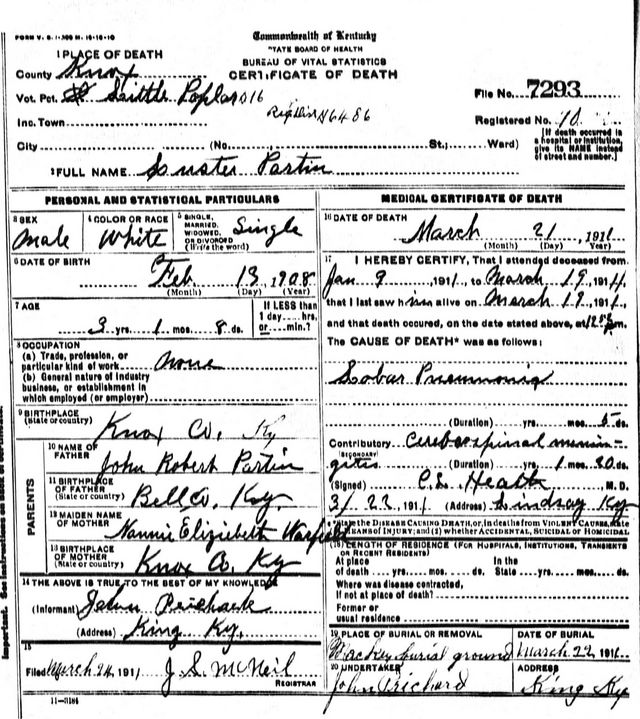 FORM V. S. 1-300 M 10-10-10
Commonwealth of Kentucky
STATE BOARD OF HEALTH
BUREAU OF VITAL STATISTICS
CERTIFICATE OF DEATH
1 PLACE OF DEATH
County Knox
Vot. Pct. Little Poplar 16
File No. 7293
Inc. Town
Registered No. 10
City (No. St.; Ward)
[If death occurred in a hospital or institution, give its NAME instead of street and number.]
2 FULL NAME Partin
PERSONAL AND STATISTICAL PARTICULARS
3 SEX male
4 COLOR OR RACE White
5 SINGLE, MARRIED, WIDOWED, OR DIVORCED (Write the word) Single
6 DATE OF BIRTH Feb 13, 1908
(Month) (Day) (Year)
7 AGE
3 yrs. 1 mos. 8 ds.
If LESS than 1 day....hrs. or....min.?
8 OCCUPATION
(a) Trade, profession, or particular kind of work None
(b) General nature of industry business, or establishment in which employed (or employer)
9 BIRTHPLACE
(State or country) Knox Co. Ky
PARENTS
10 NAME OF FATHER John Robert Partin
11 BIRTHPLACE OF FATHER (State or country) Bell Co. Ky.
12 MAIDEN NAME OF MOTHER Nannie Elizibeth
13 BIRTHPLACE OF MOTHER (State or country) Knox Co. Ky
14 THE ABOVE IS TRUE TO THE BEST OF MY KNOWLEDGE
(Informant) John
(Address) King Ky.
15
Filed March 24 1911 J. S. McNeil
REGISTRAR
11-3184
MEDICAL CERTIFICATE OF DEATH
16 DATE OF DEATH
March 21, 1911
(Month) (Day) (Year)
17 I HEREBY CERTIFY, That I attended deceased from
Jan 9, 1911, to March 19, 1911,
that I last saw him alive on March 19, 1911,
and that death occured, on the date stated above, at m.
The CAUSE OF DEATH* was as follows:
Lobar Pneumonia
(Duration) yrs. mos. 5 ds.
Contributory Cerebrospinal menin-
(SECONDARY)
gitis (Duration) yrs. 1 mos. 20 ds.
(Signed) C. L. Heath M. D.
3/22, 1911 (Address) Lindsay Ky
*State the DISEASE CAUSING DEATH, or, in deaths from VIOLENT CAUSES, state
MEANS OF INJURY; and (2) whether ACCIDENTAL, SUICIDAL OR HOMICIDAL
18 LENGTH OF RESIDENCE (FOR HOSPITALS, INSTITUTIONS, TRANSIENTS OR RECENT RESIDENTS)
At place of death....yrs.....mos.....ds.
In the State.....yrs.....mos.....ds.
Where was disease contracted,
if not at place of death?
Former or
usual residence
19 PLACE OF BURIAL OR REMOVAL
burial ground
DATE OF BURIAL
March 22, 1911
20 UNDERTAKER
John Prichard
ADDRESS
King Ky
Important. See instructions on back of certificate.